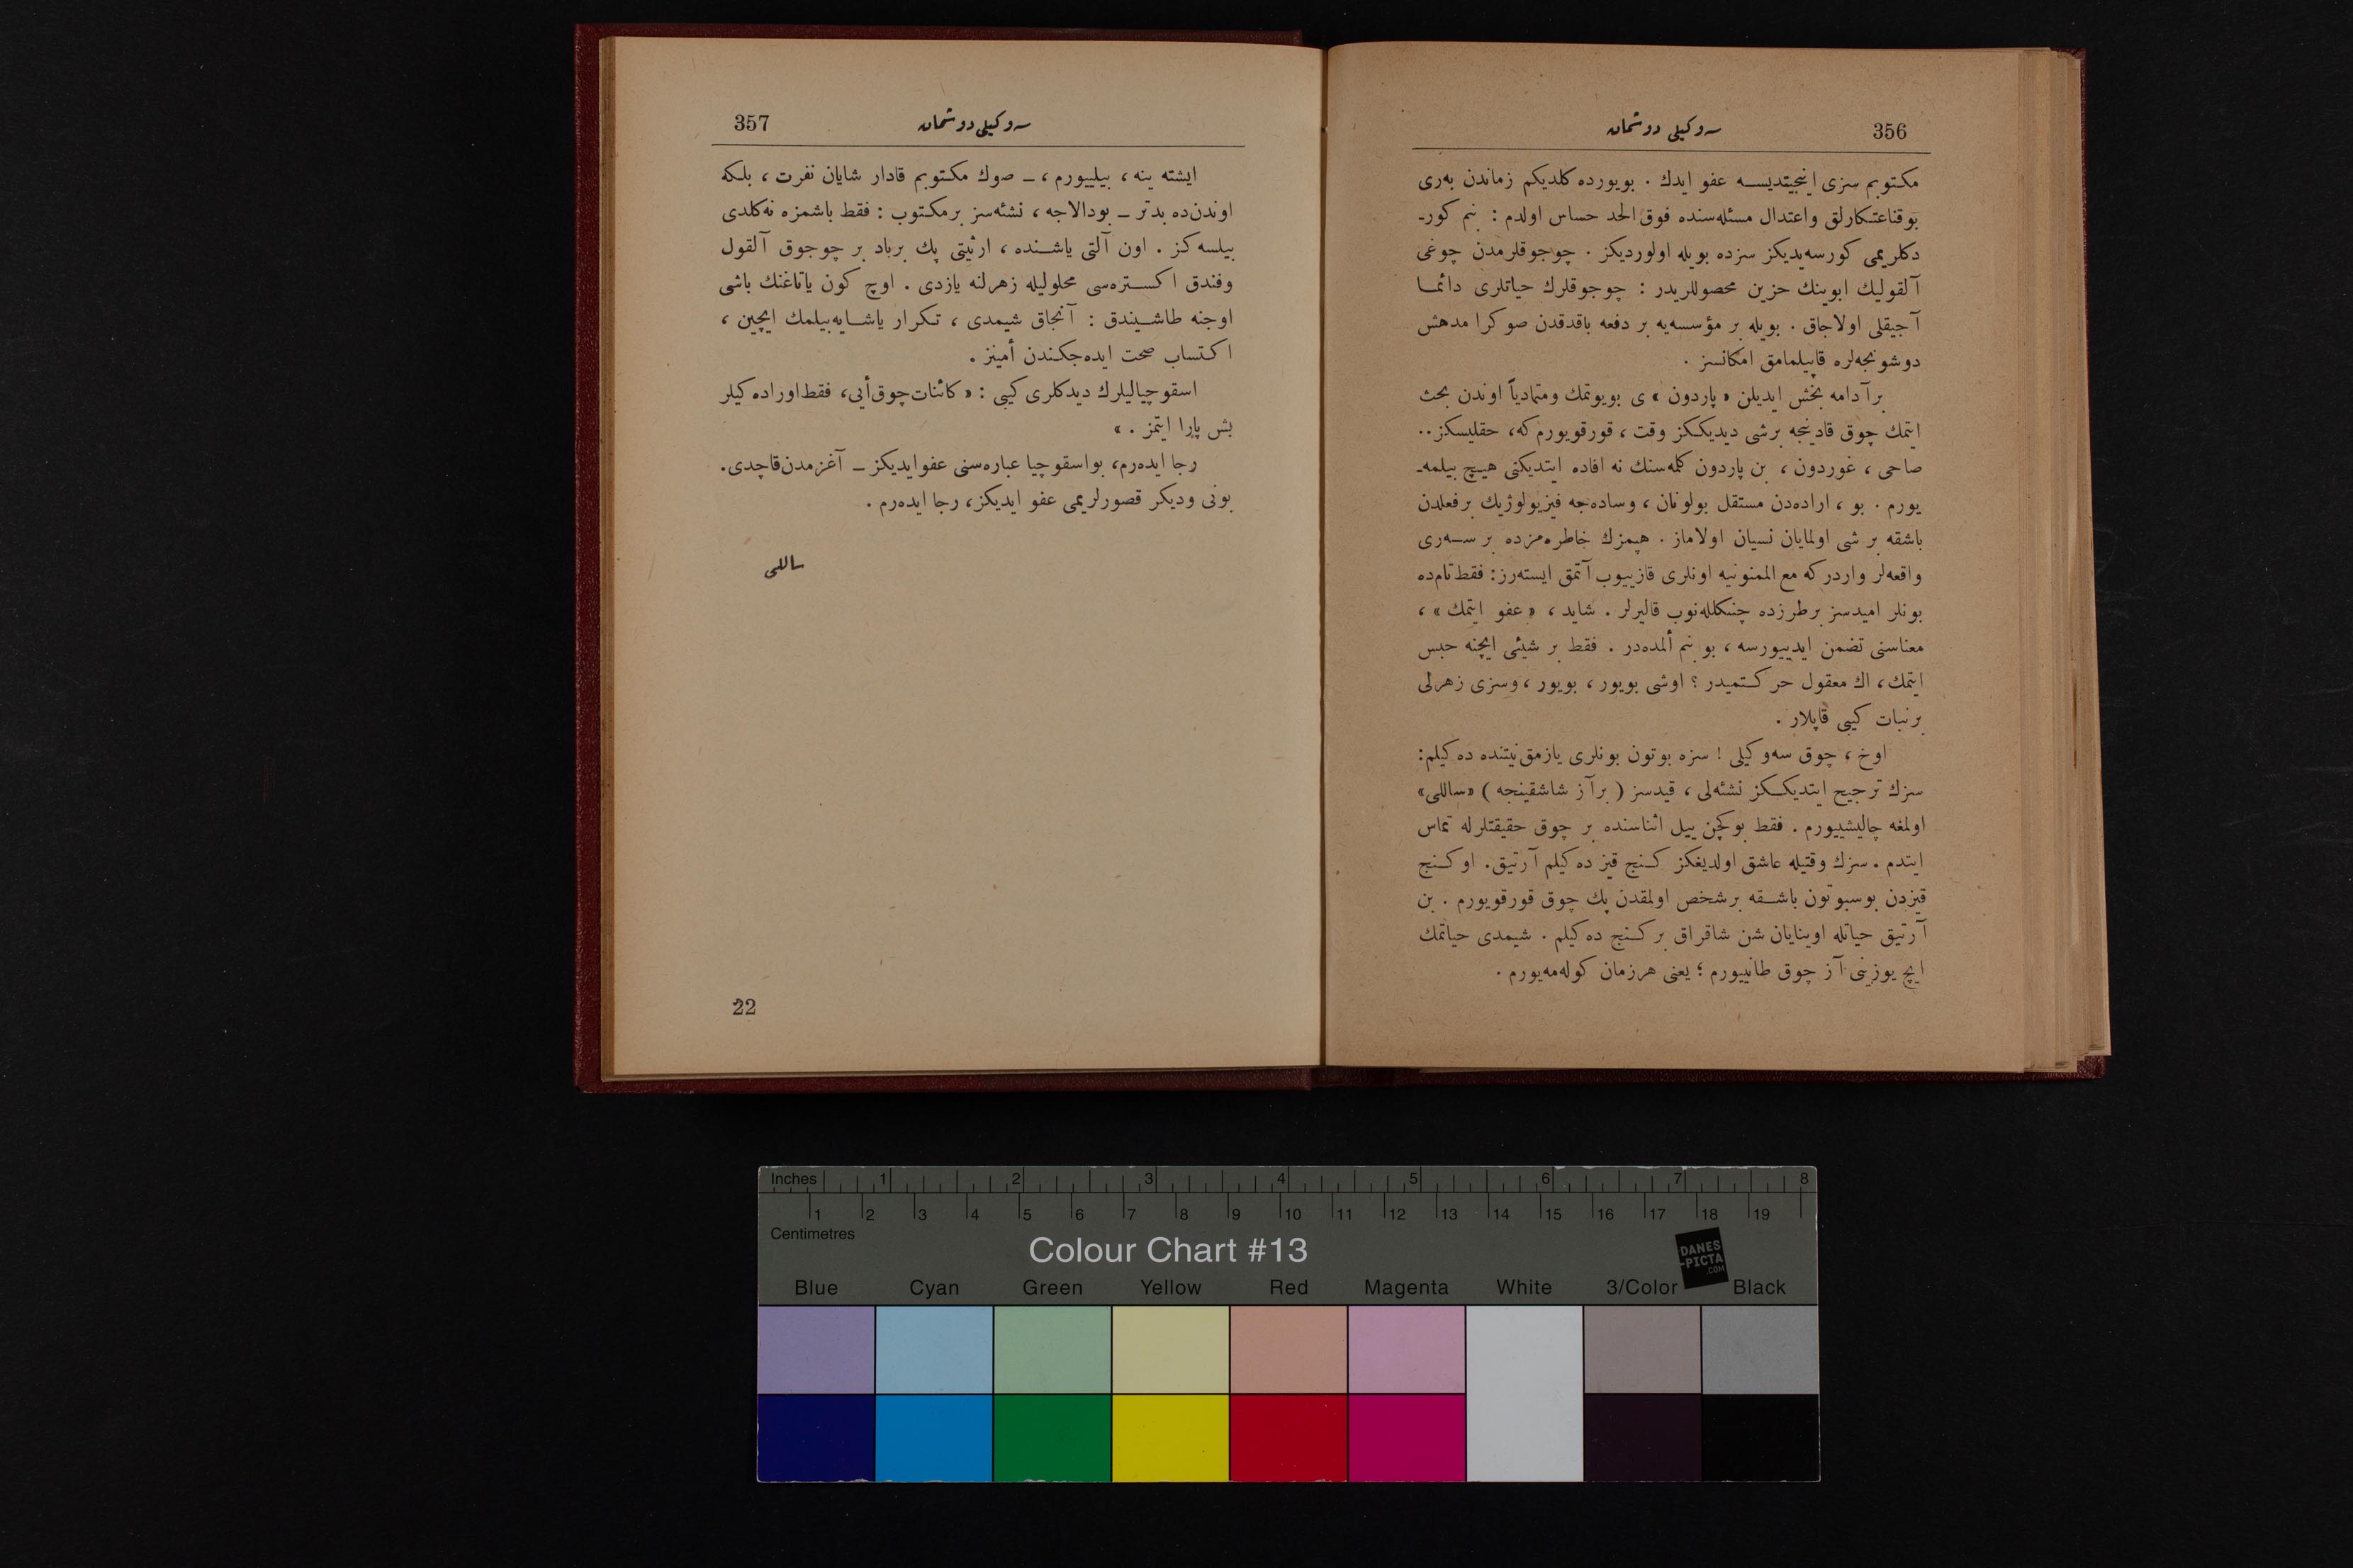 356
سه‌وکیلی دوشمان
مکتوبم سزی اینجیتدیسه عفو ایدك . بویورده کلدیکم زماندن به‌ری
بوقناعتکارلق واعتدال مسئله‌سنده فوق‌الحد حساس اولدم : بنم کور-
دکلریمی کورسه‌یدیکز سزده بویله اولوردیکز . چوجوقلرمدن چوغی
آلقولیك ابوینك حزین محصوللریدر : چوجوقلرك حیاتلری دائما
آجیقلی اولاجاق . بویله بر مؤسسه‌یه بر دفعه باقدقدن صوکرا مدهش
دوشونجه‌لره قاپیلمامق امکانسز .
برآدامه بخش ایدیلن « پاردون » ی بویوتمك ومتمادیاً اوندن بحث
ایتمك چوق قادینجه برشی دیدیککز وقت ، قورقویورم که، حقلیسکز..
صاحی ، غوردون ، بن پاردون کلمه‌سنك نه افاده ایتدیکنی هیچ بیلمه-
یورم . بو ، اراده‌دن مستقل بولونان ، وساده‌جه فیزیولوژیك برفعلدن
باشقه بر شی اولمایان نسیان اولاماز . هپمزك خاطره‌مزده بر سه‌ری
واقعه‌لر واردرکه مع‌الممنونیه اونلری قازییوب آتمق ایسته‌رز: فقط تام‌ده
بونلر امیدسز برطرزده چنکللهنوب قالیرلر . شاید ، « عفو ایتمك » ،
معناسنی تضمن ایدییورسه ، بو بنم ألمده‌در . فقط بر شیئی ایچنه حبس
ایتمك، اك معقول حرکتمیدر ؟ اوشی بویور ، بویور ، وسزی زهرلی
برنبات کیبی قاپلار .
اوخ ، چوق سه‌وکیلی ! سزه بوتون بونلری یازمق نیتنده ده‌کیلم:
سزك ترجیح ایتدیککز نشئه‌لی ، قیدسز ( برآز شاشقینجه ) «ساللی»
اولمغه چالیشییورم . فقط بوکچن ییل اثناسنده بر چوق حقیقتلرله تماس
ایتدم . سزك وقتیله عاشق اولدیغکز کنج قیز ده‌کیلم آرتیق. او کنج
قیزدن بوسبوتون باشقه برشخص اولمقدن پك چوق قورقویورم . بن
آرتیق حیاتله اوینایان شن شاقراق بر کنج ده‌کیلم . شیمدی حیاتمك
ایچ یوزینی آز چوق طانییورم ؛ یعنی هرزمان کوله‌مه‌یورم .
357
سه‌وکیلی دوشمان
ایشته ینه ، بیلییورم ، — صوك مکتوبم قادار شایان نفرت ، بلکه
اوندن‌ده بدتر — بودالاجه ، نشئه‌سز برمکتوب : فقط باشمزه نه‌کلدی
بیلسه‌کز . اون آلتی یاشنده ، ارثیتی پك برباد بر چوجوق آلقول
وفندق اکستره‌سی محلولیله زهرلنه یازدی . اوچ کون یاتاغنك باشی
اوجنه طاشیندق : آنجاق شیمدی ، تکرار یاشایه‌بیلمك ایچین ،
اکتساب صحت ایده‌جکندن أمینز .
اسقوچیالیلرك دیدکلری کیبی : « کائنات چوق أیی، فقط اوراده‌کیلر
بش پارا ایتمز . »
رجا ایده‌رم، بواسقوچیا عباره‌سنی عفوایدیکز — آغزمدن قاچدی.
بونی ودیکر قصورلریمی عفو ایدیکز، رجا ایده‌رم .
ساللی
22
Inches 1 2 3 4 5 6 7 8
1 2 3 4 5 6 7 8 9 10 11 12 13 14 15 16 17 18 19
Centimetres
Colour Chart #13
DANES
-PICTA
.COM
Blue Cyan Green Yellow Red Magenta White 3/Color Black